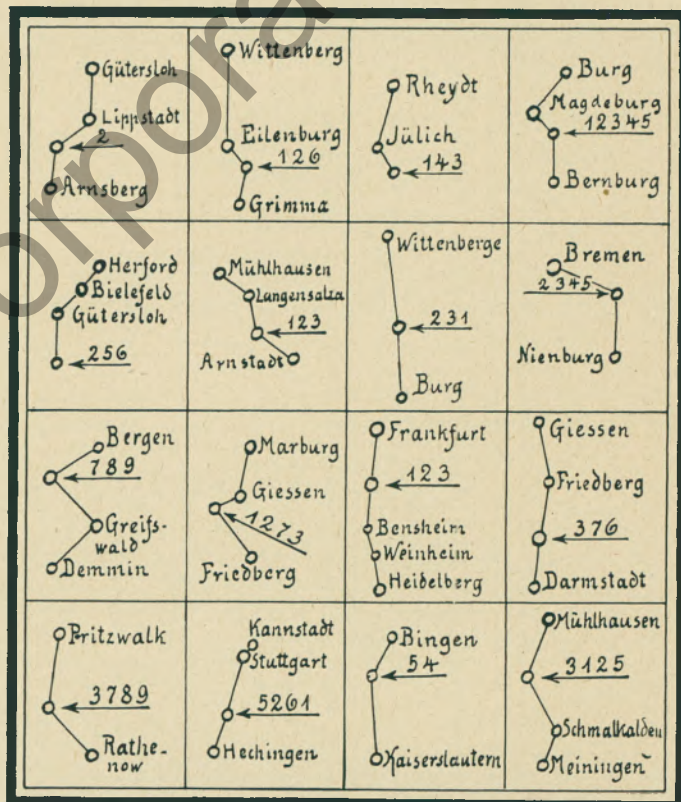 Gütersloh
Lippstadt
2
Arnsberg
Wittenberg
Eilenburg
126
Grimma
Rheydt
Jülich
143
Burg
Magdeburg
12345
Bernburg
Herford
Bielefeld
Gütersloh
256
Mühlhausen
Langensalza
123
Arnstadt
Wittenberge
231
Burg
Bremen
2345
Nienburg
Bergen
789
Greifs-
wald
Demmin
Marburg
Giessen
1273
Friedberg
Frankfurt
123
Bensheim
Weinheim
Heidelberg
Giessen
Friedberg
376
Darmstadt
Pritzwalk
3789
Rathe-
now
Kannstadt
Stuttgart
5261
Hechingen
Bingen
54
Kaiserslautern
Mühlhausen
3125
Schmalkalden
Meiningen